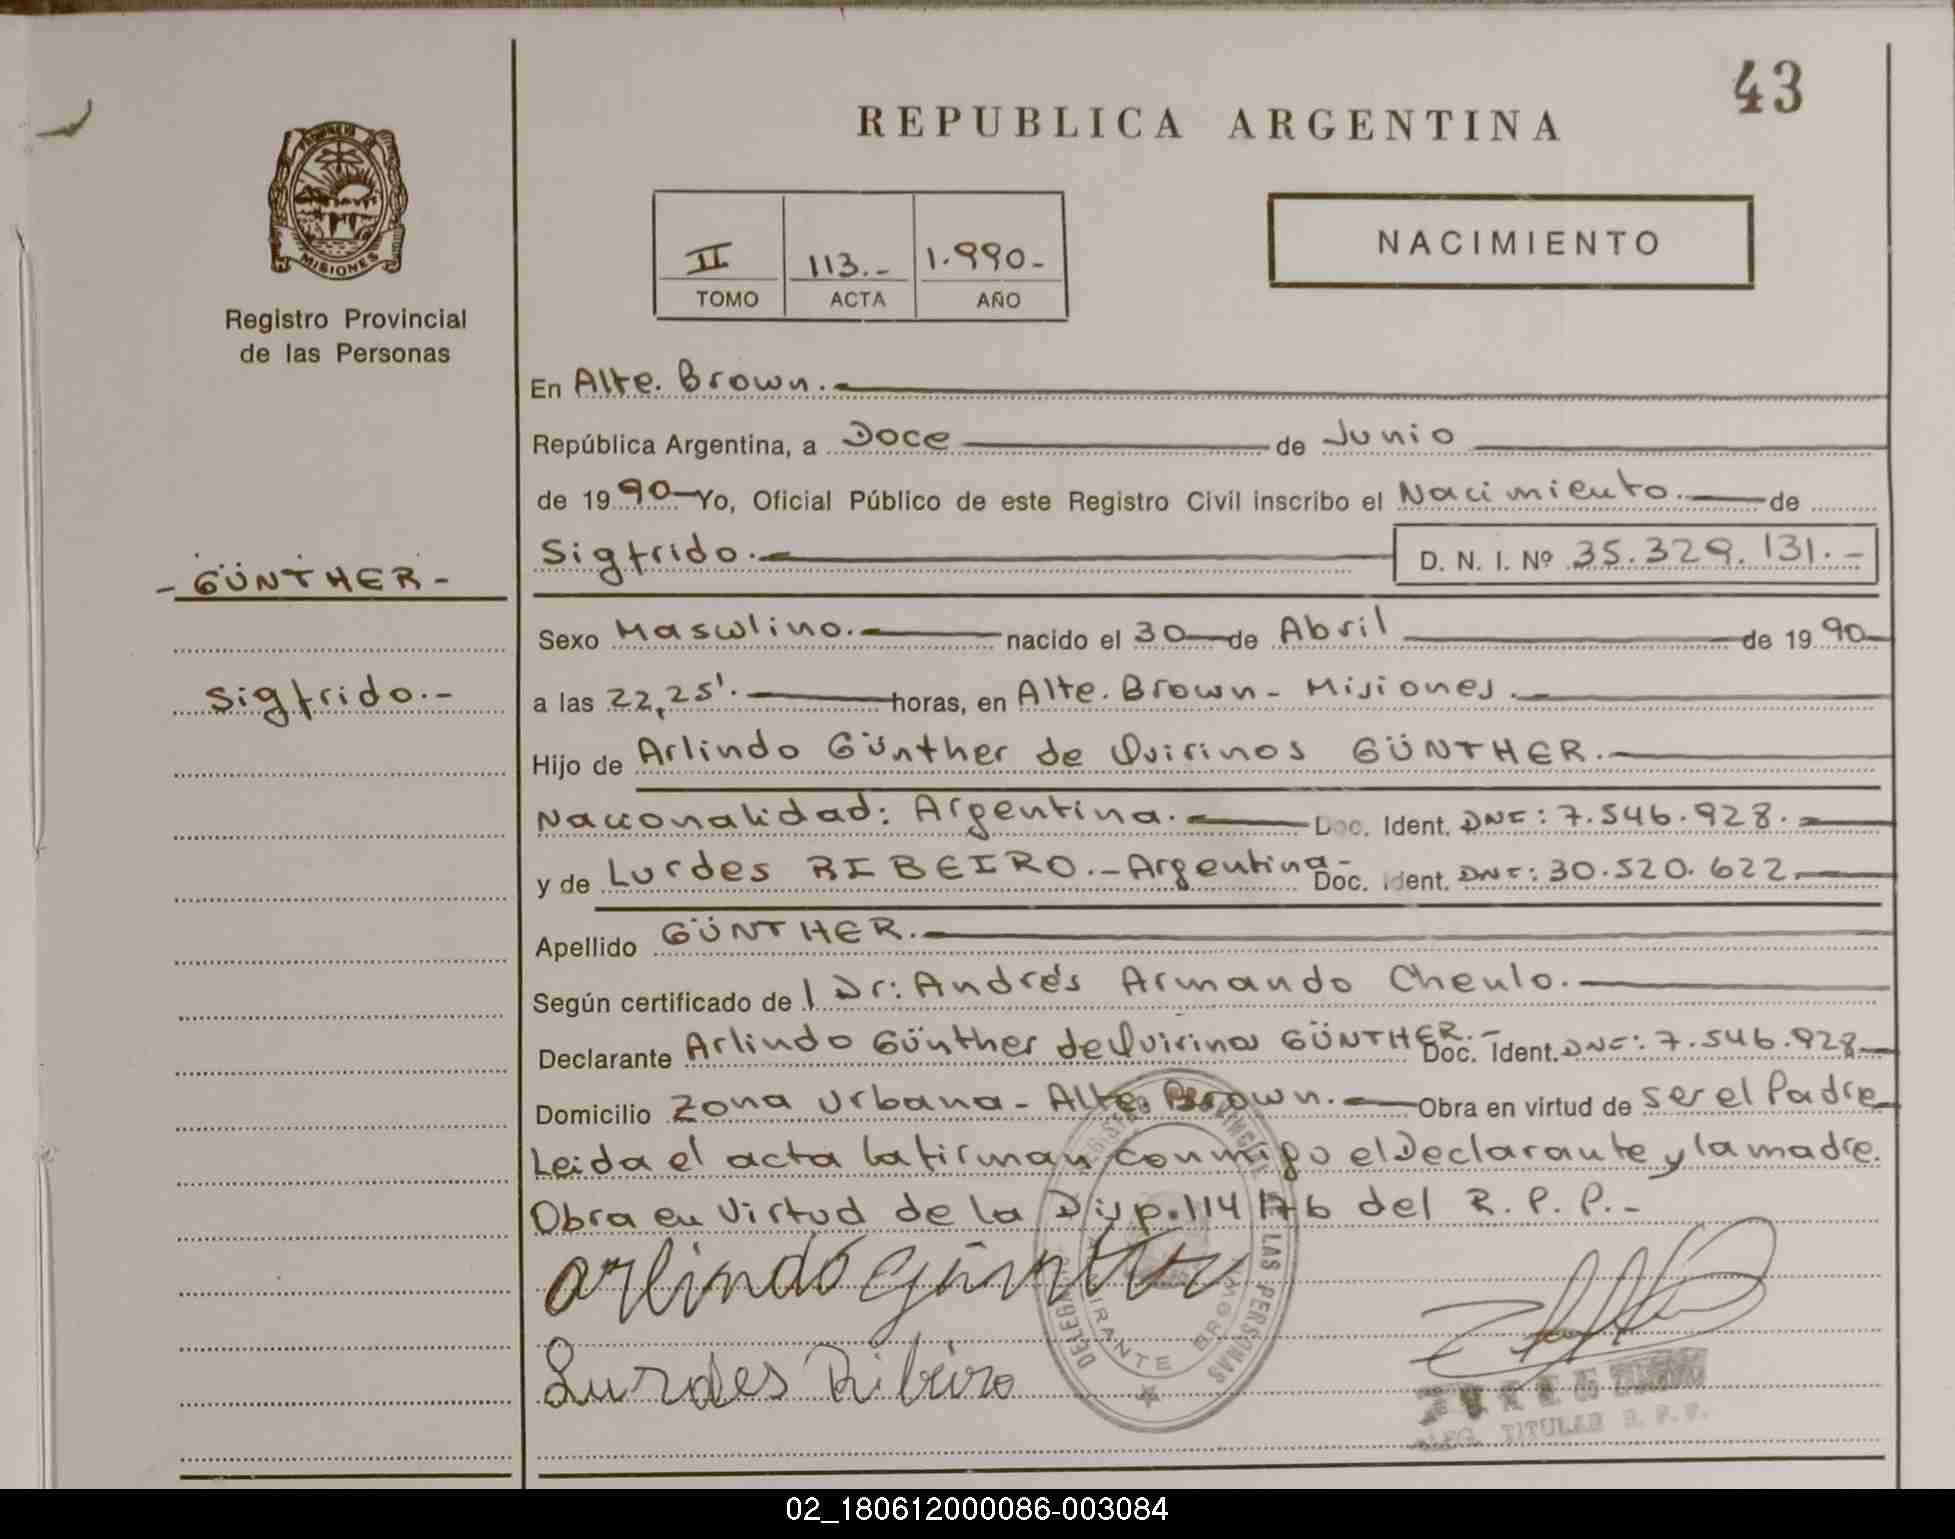 43
REPUBLICA ARGENTINA
PROVINCIA
MISIONES
Registro Provincial
de las Personas
II 113.- 1.990-
TOMO ACTA AÑO
NACIMIENTO
En Alte. Brown.
República Argentina, a Doce de Junio
de 1990 Yo, Oficial Público de este Registro Civil inscribo el Nacimiento. de
- GÜNTHER -
Sigfrido. D. N. I. Nº 35.329.131.-
Sexo Masculino. nacido el 30 de Abril de 1990
Sigfrido.-
a las 22,25'. horas, en Alte. Brown - Misiones.
Hijo de Arlindo Günther de Quirinos GÜNTHER.
Nacionalidad: Argentina. Doc. Ident. DNI: 7.546.928.
y de Lurdes RIBEIRO.- Argentina- Doc. Ident. DNI: 30.520.622.
Apellido GÜNTHER.
Según certificado de l Dr: Andrés Armando Cheulo.
Declarante Arlindo Günther de Quirinos GÜNTHER.- Doc. Ident. DNI: 7.546.928
Domicilio Zona Urbana - Alte. Brown. Obra en virtud de ser el Padre
Leida el acta la firman conmigo el Declarante y la madre.
Obra en Virtud de la Disp. 114/76 del R. P. P.-
arlindo günther
Lurdes Ribeiro
DELEGACION REGISTRO PROVINCIAL DE LAS PERSONAS
ALMIRANTE BROWN
DELEG. TITULAR R. P. P.
02_180612000086-003084